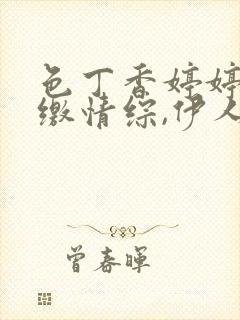 色丁香婷婷
缴情综,伊人
曾春晖